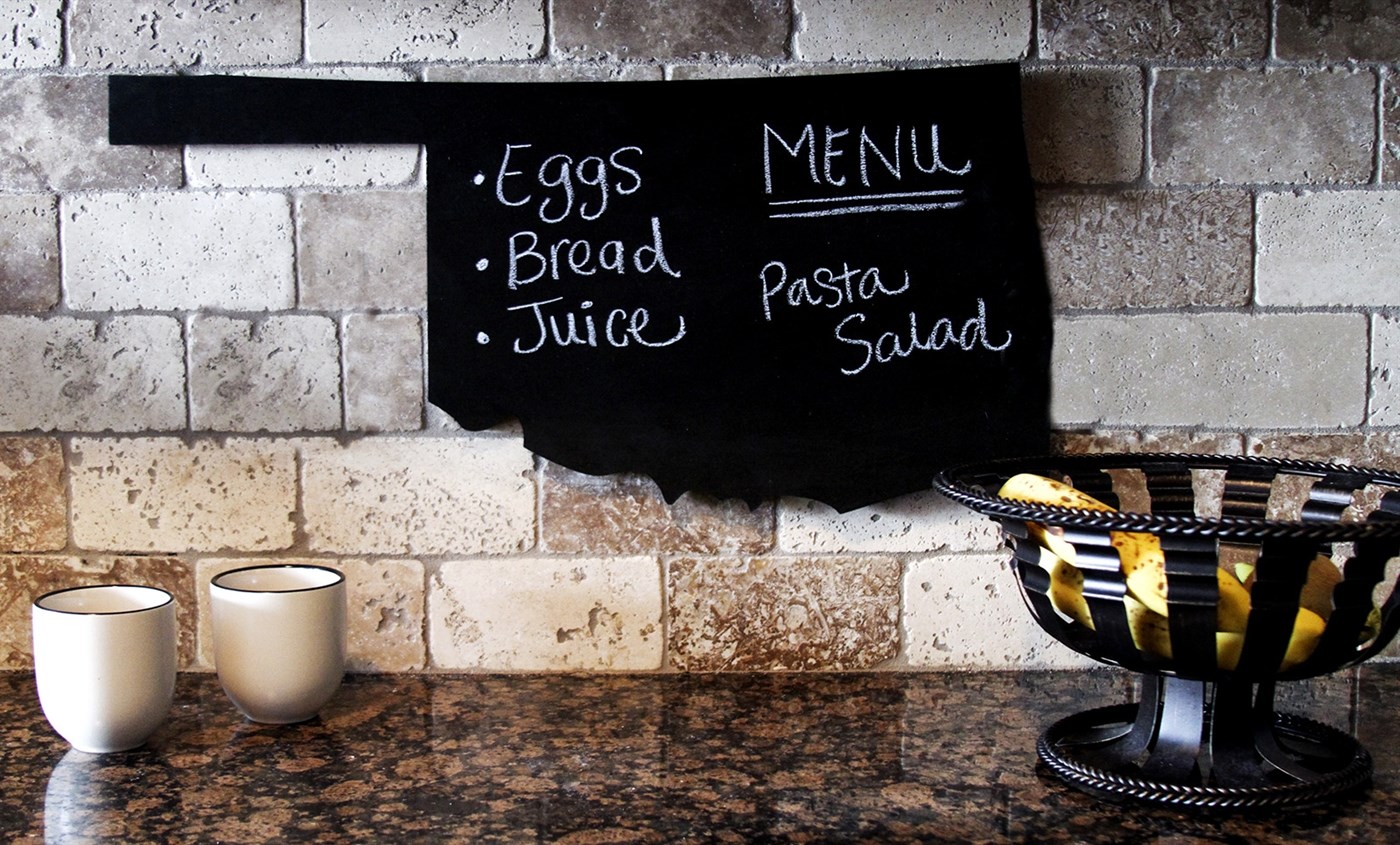 • Eggs
• Bread
• Juice
MENU
Pasta
Salad